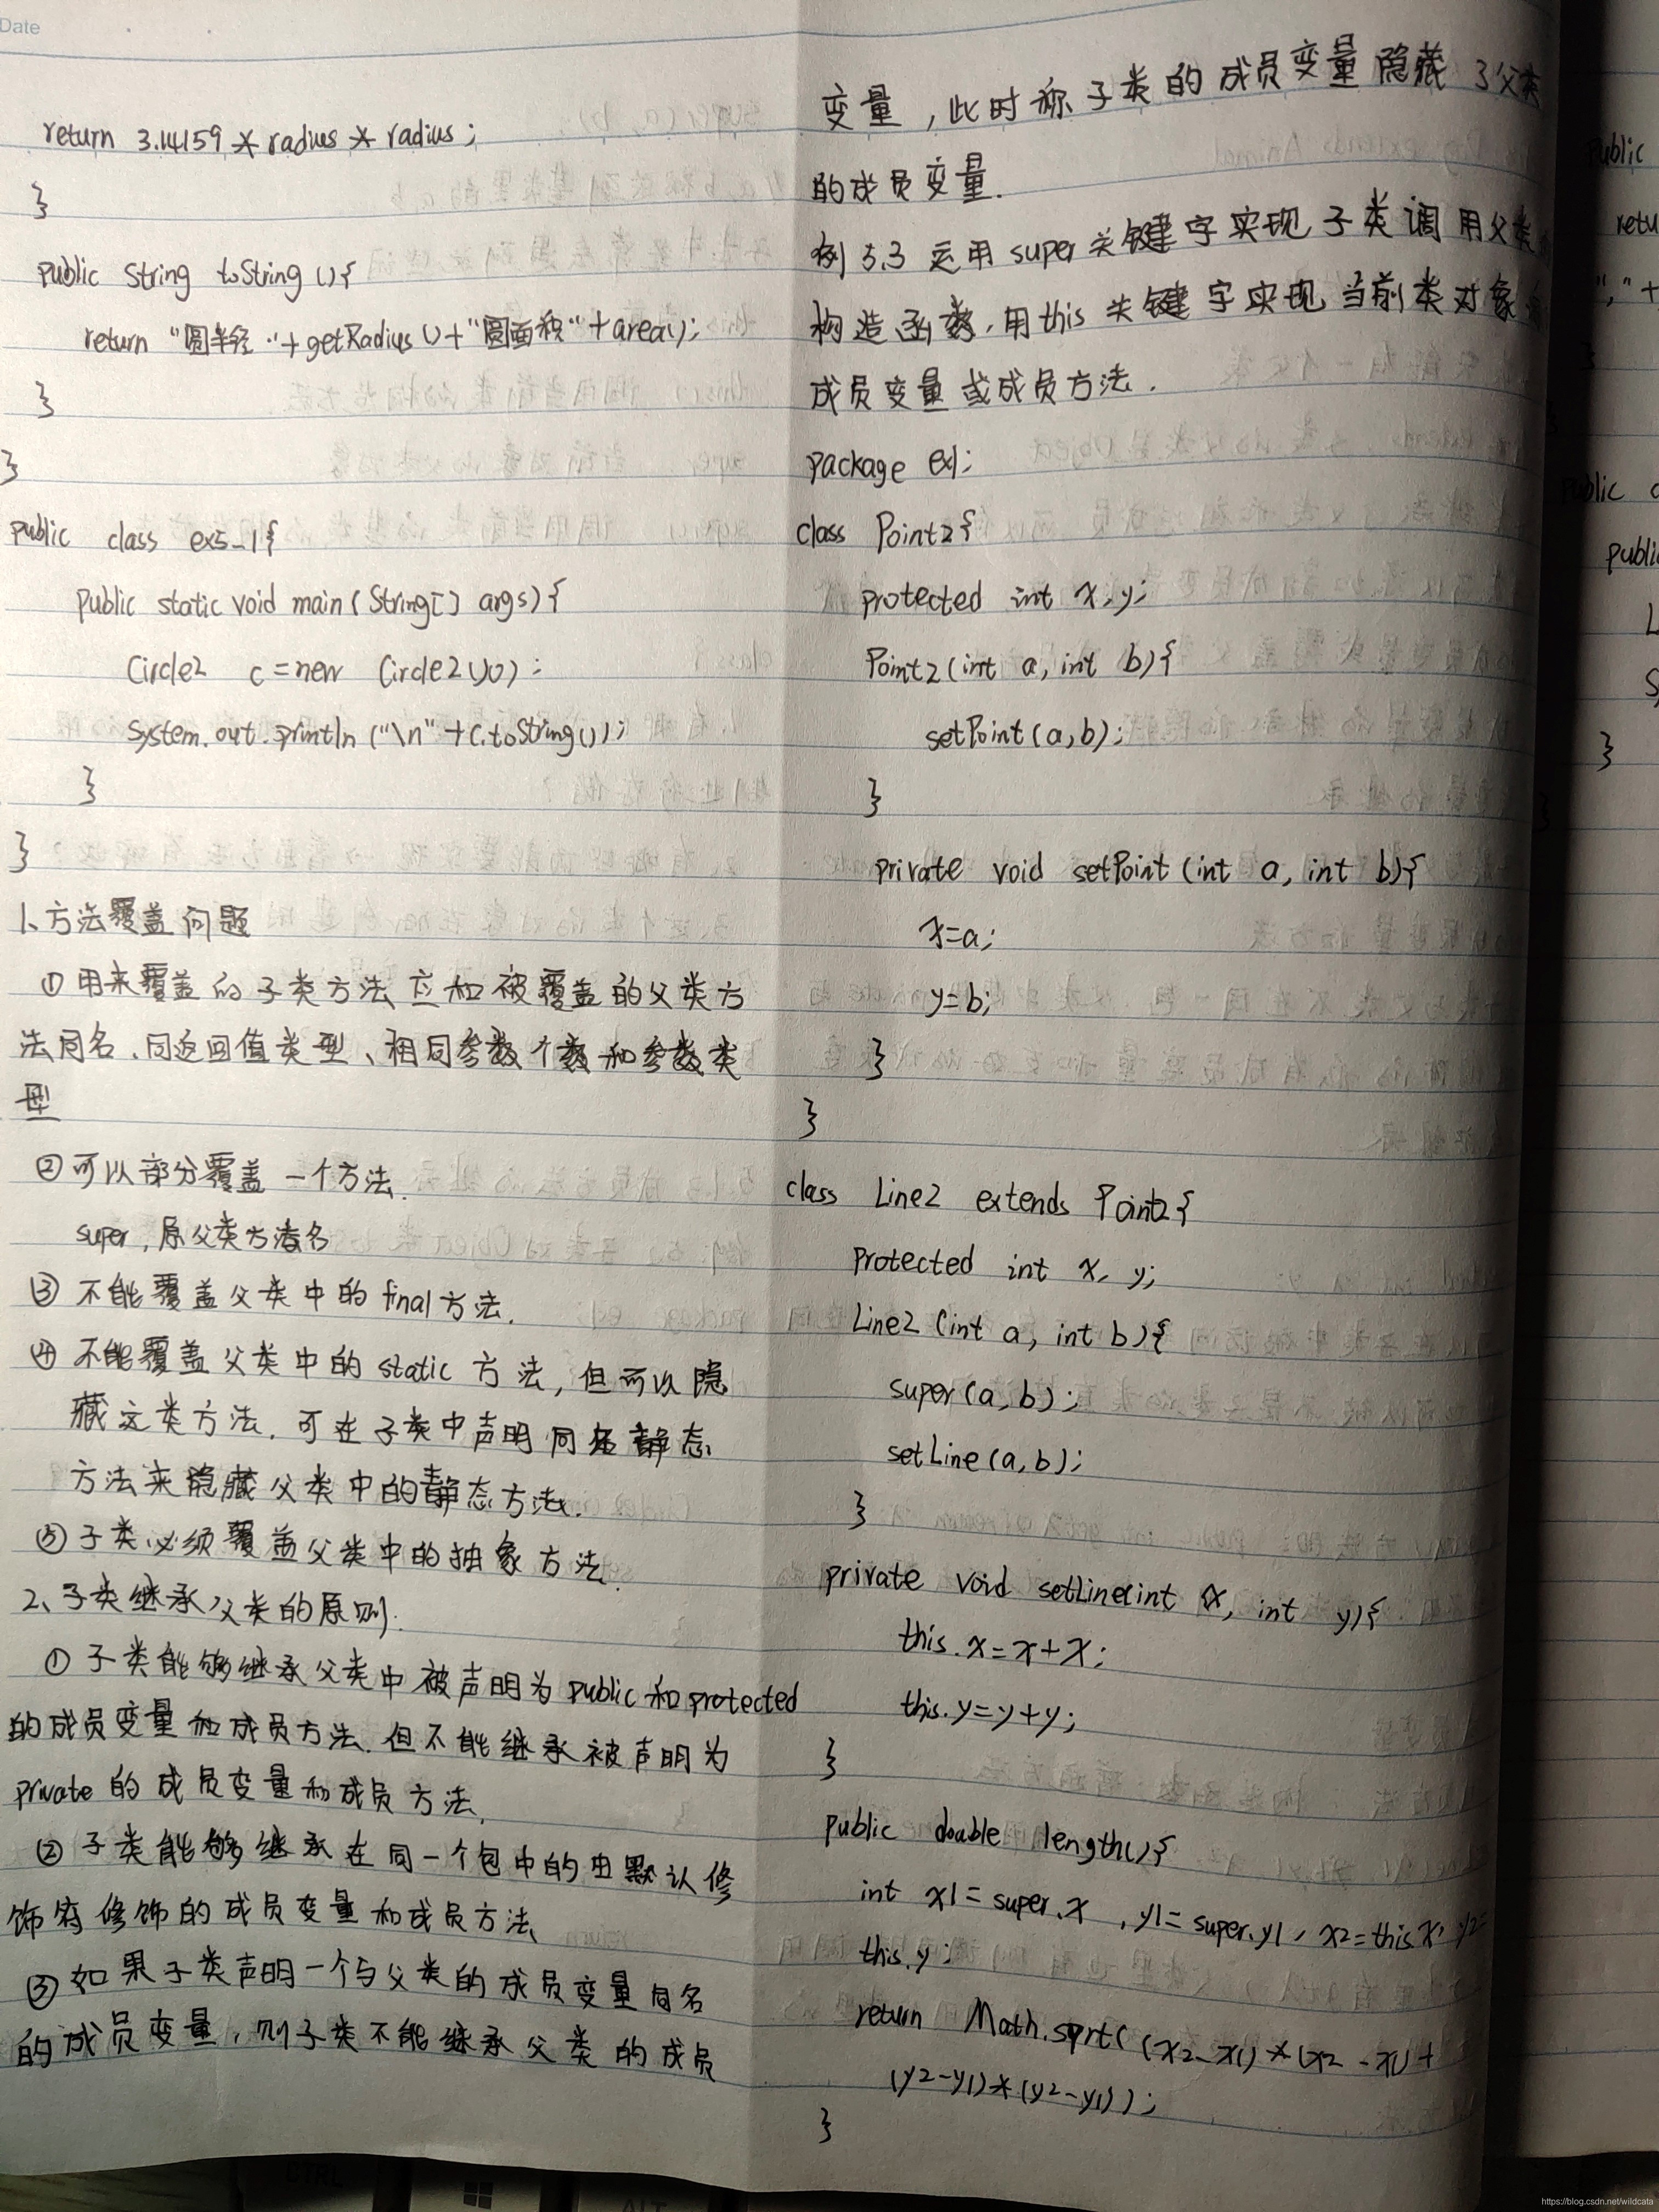 Date
return 3.14159 * radius * radius ;
}
public String toString (){
return "圆半径"+getRadius ()+"圆面积"+area();
}
}
public class ex5-1{
public static void main (String[] args){
Circle2 c=new Circle2(10) ;
System.out.println ("\n"+c.toString());
}
}
1、方法覆盖问题
①用来覆盖的子类方法应和被覆盖的父类方
法同名、同返回值类型、相同参数个数和参数类
型
②可以部分覆盖一个方法.
super.原父类方法名
③不能覆盖父类中的 final 方法.
④不能覆盖父类中的 static 方法, 但可以隐
藏这类方法. 可在子类中声明同名静态
方法来隐藏父类中的静态方法.
⑤子类必须覆盖父类中的抽象方法.
2、子类继承父类的原则.
①子类能够继承父类中被声明为 public 和 protected
的成员变量和成员方法. 但不能继承被声明为
private 的成员变量和成员方法.
②子类能够继承在同一个包中的由默认修
饰符修饰的成员变量和成员方法
③如果子类声明一个与父类的成员变量同名
的成员变量, 则子类不能继承父类的成员
变量, 此时称子类的成员变量隐藏了父类
的成员变量.
例5.3 运用 super 关键字实现子类调用父类
构造函数, 用 this 关键字实现当前类对象
成员变量或成员方法.
package ex1;
class Point2{
protected int x,y;
Point2 (int a, int b){
setPoint(a,b);
}
private void setPoint (int a, int b){
x=a;
y=b;
}
}
class Line2 extends Point2{
protected int x, y;
Line2 (int a, int b){
super(a,b);
setLine(a,b);
}
private void setLine(int x, int y){
this.x=x+x;
this.y=y+y;
}
public double length(){
int x1=super.x ,y1=super.y1, x2=this.x, y2=
this.y;
return Math.sqrt( (x2-x1)*(x2-x1)+
(y2-y1)*(y2-y1));
}
public
retu
","+
}
public
public
L
S
}
CTRL
ALT
https://blog.csdn.net/wildcata